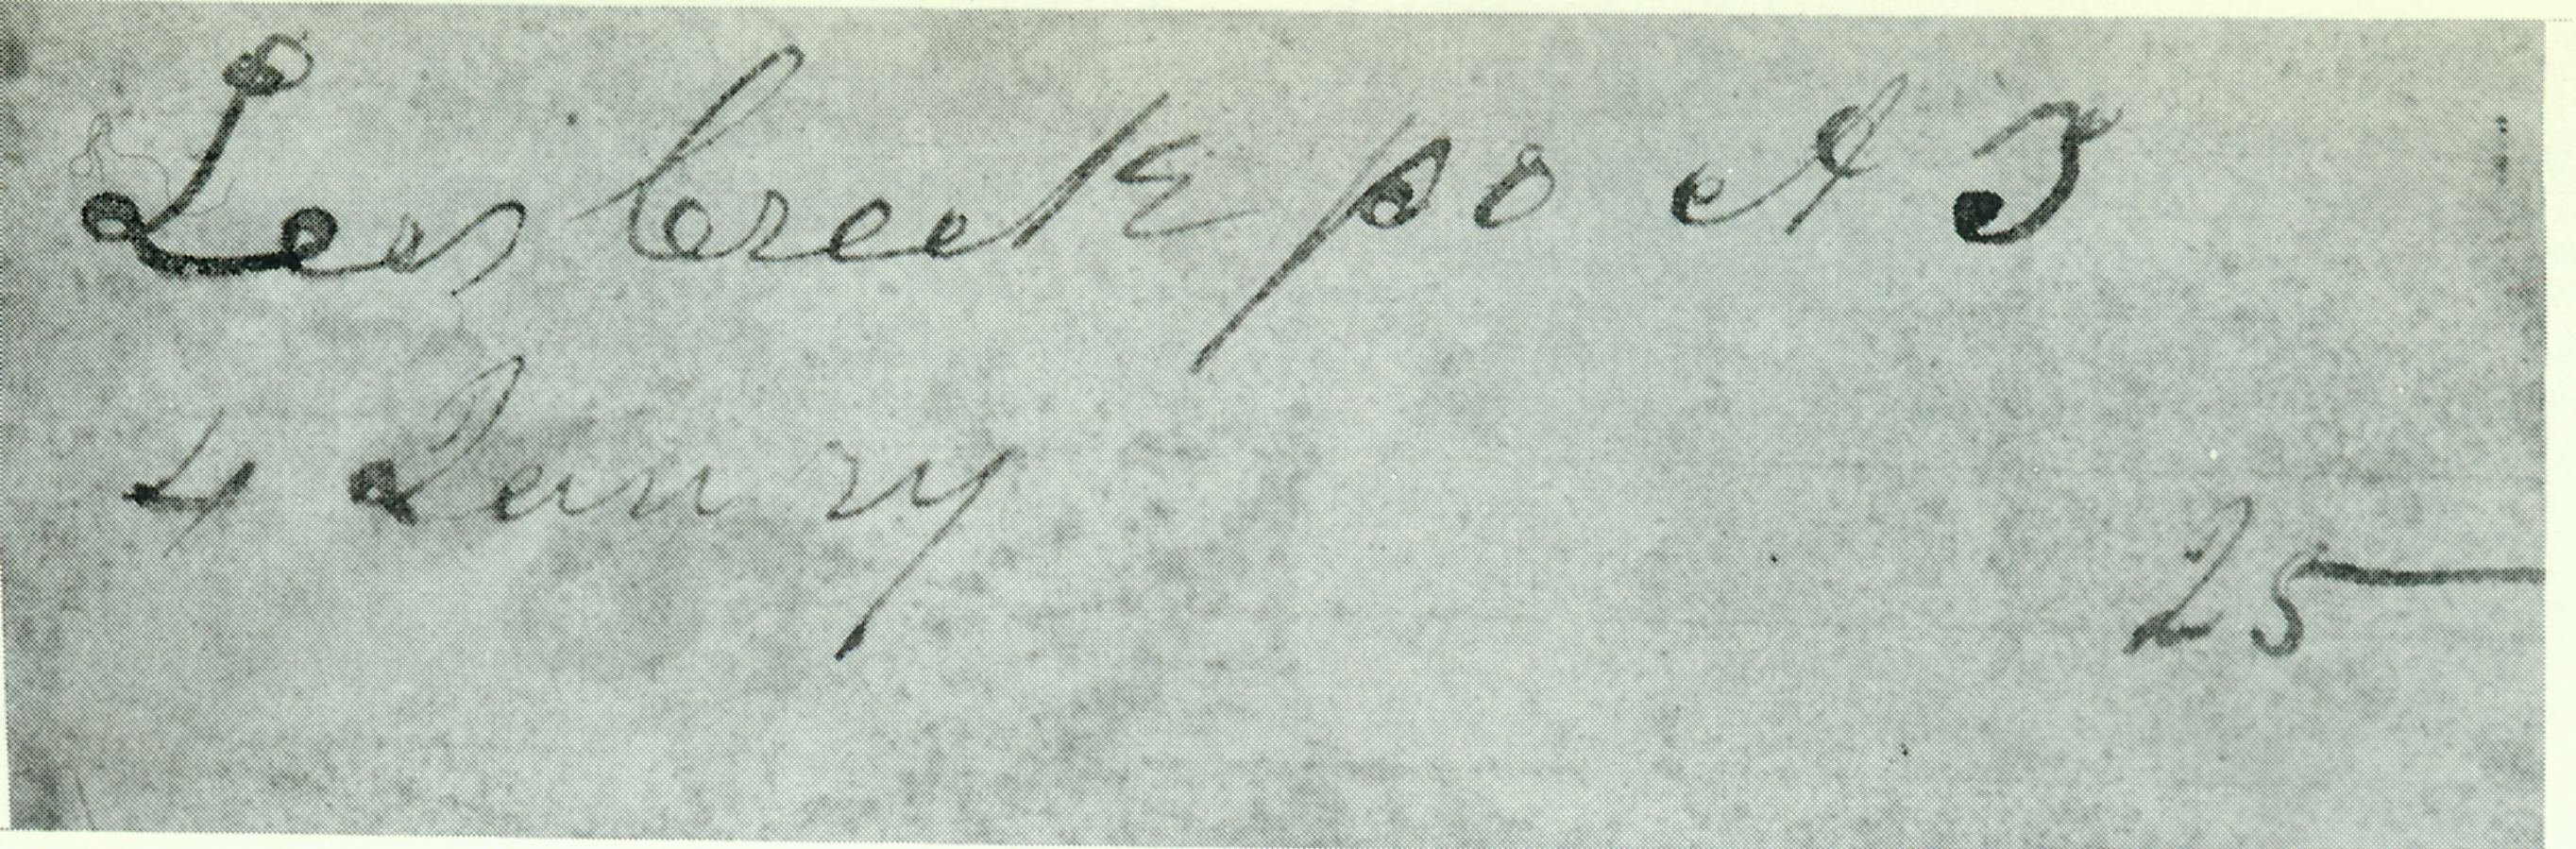 Lees Creek po A T
4 Janury
25